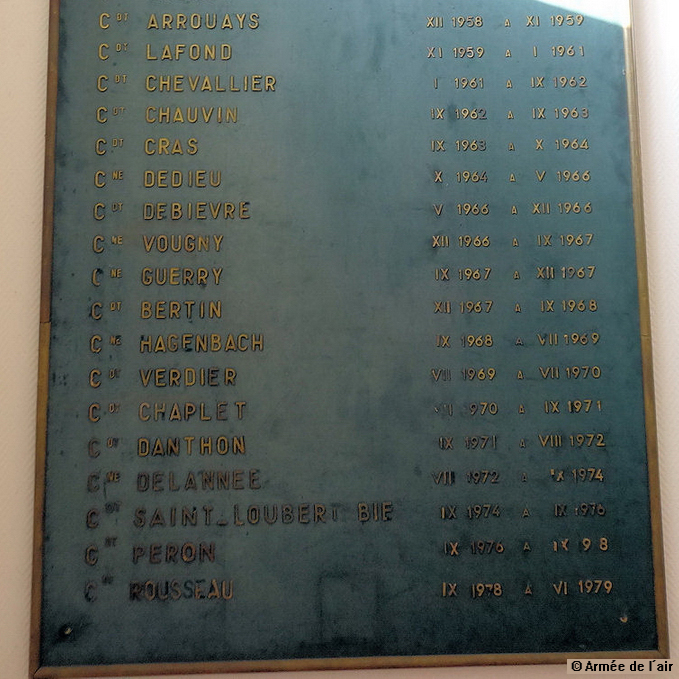 CDT ARROUAYS XII 1958 A XI 1959
CDT LAFOND XI 1959 A I 1961
CDT CHEVALLIER I 1961 A IX 1962
CDT CHAUVIN IX 1962 A IX 1963
CDT CRAS IX 1963 A X 1964
CNE DEDIEU X 1964 A V 1966
CDT DEBIEVRE V 1966 A XII 1966
CNE VOUGNY XII 1966 A IX 1967
CNE GUERRY IX 1967 A XII 1967
CDT BERTIN XII 1967 A IX 1968
CNE HAGENBACH IX 1968 A VII 1969
CDT VERDIER VII 1969 A VII 1970
CDT CHAPLET VII 1970 A IX 1971
CDT DANTHON IX 1971 A VIII 1972
CNE DELANNEE VIII 1972 A IX 1974
CDT SAINT_LOUBERT BIE IX 1974 A IX 1976
CDT PERON IX 1976 A IX 9 8
C ROUSSEAU IX 1978 A VI 1979
© Armée de l´air